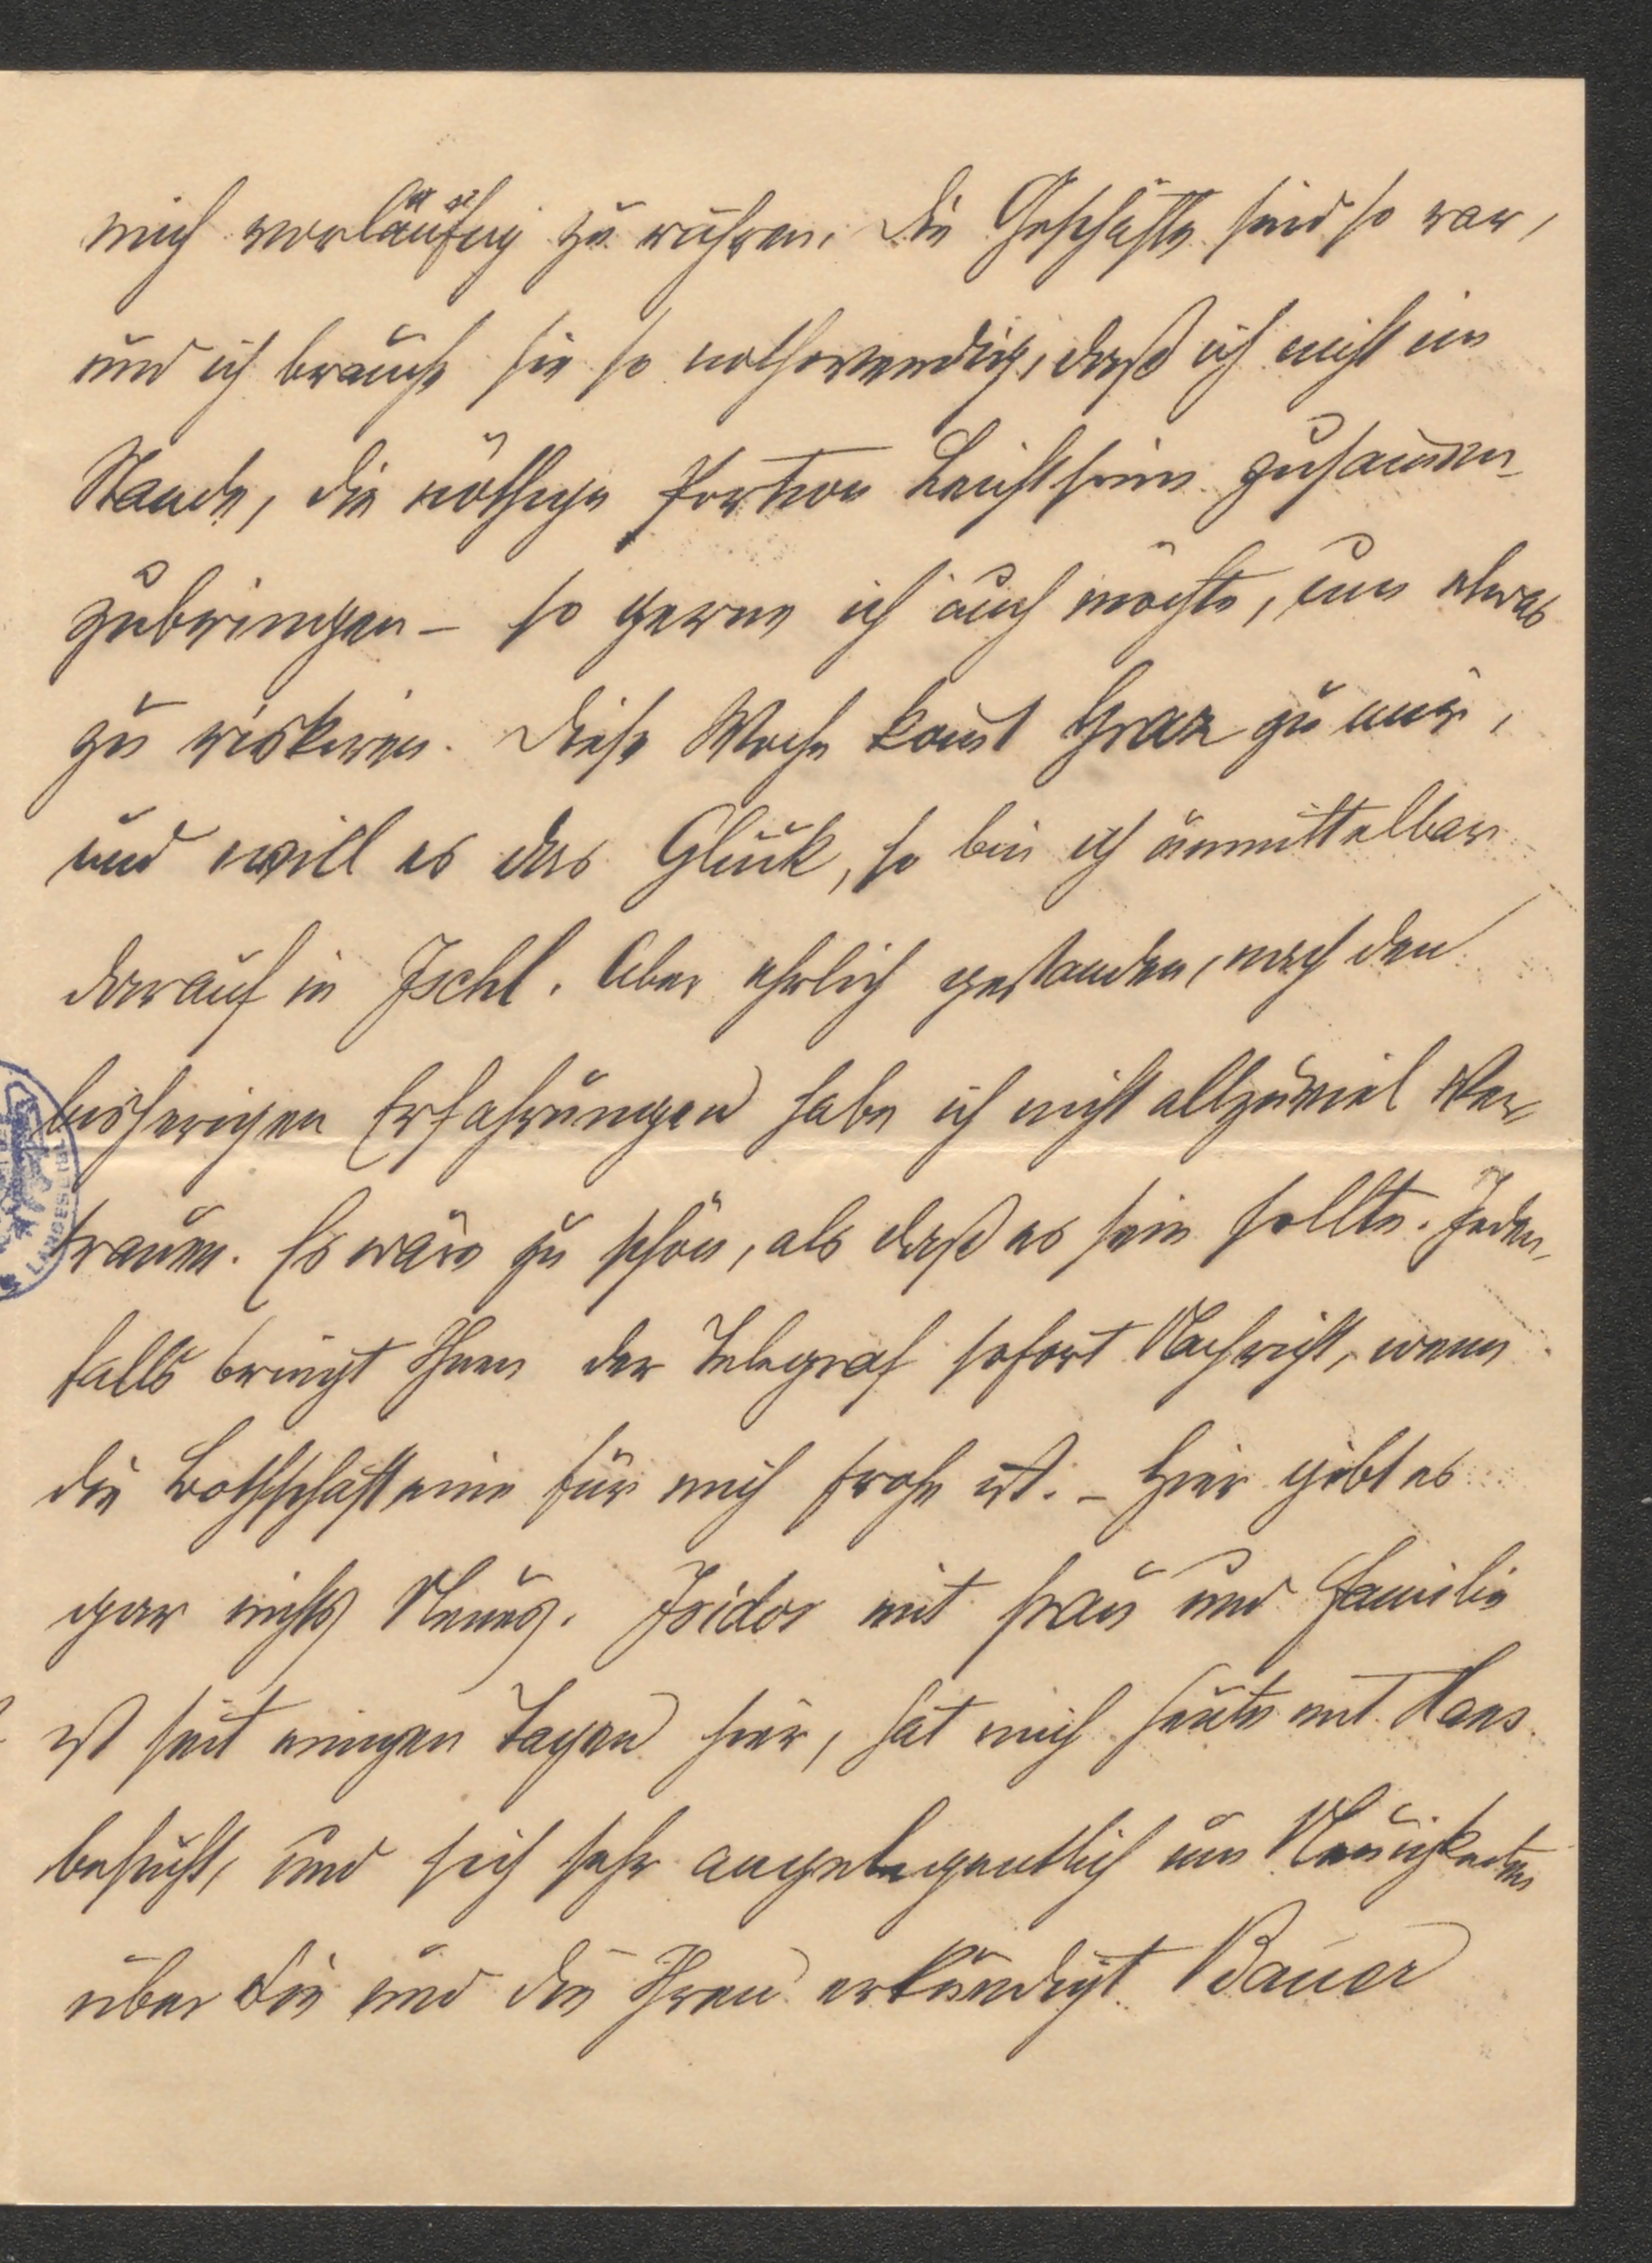 mich vorläufig zu rühren. Die Geschäfte sind so rar,
und ich brauche sie so nothwendig, daß ich nicht im
Stande, die nöthige Portion Leichtsinn zusammen-
zubringen – so gerne ich auch möchte, um etwas
zu riskiren. Diese Woche komt Graz zu mir,
und will es das Glück, so bin ich unmittelbar
darauf in Ischl. Aber ehrlich gestanden, nach den
bisherigen Erfahrungen habe ich nicht allzuviel Ver-
trauen. Es wäre zu schön, als daß es sein sollte. Jeden-
falls bringt Ihnen der Telegraf sofort Nachricht, wenn
die Bothschaft eine für mich frohe ist. – Hier gibt es
gar nichts Neues. Isidor mit Frau und Familie
ist seit einigen Tagen hier, hat mich heute mit Hans
besucht, und sich sehr angelegentlich um Neuigkeiten
über Sie und die Ihren erkundigt. Bauer
LANDES